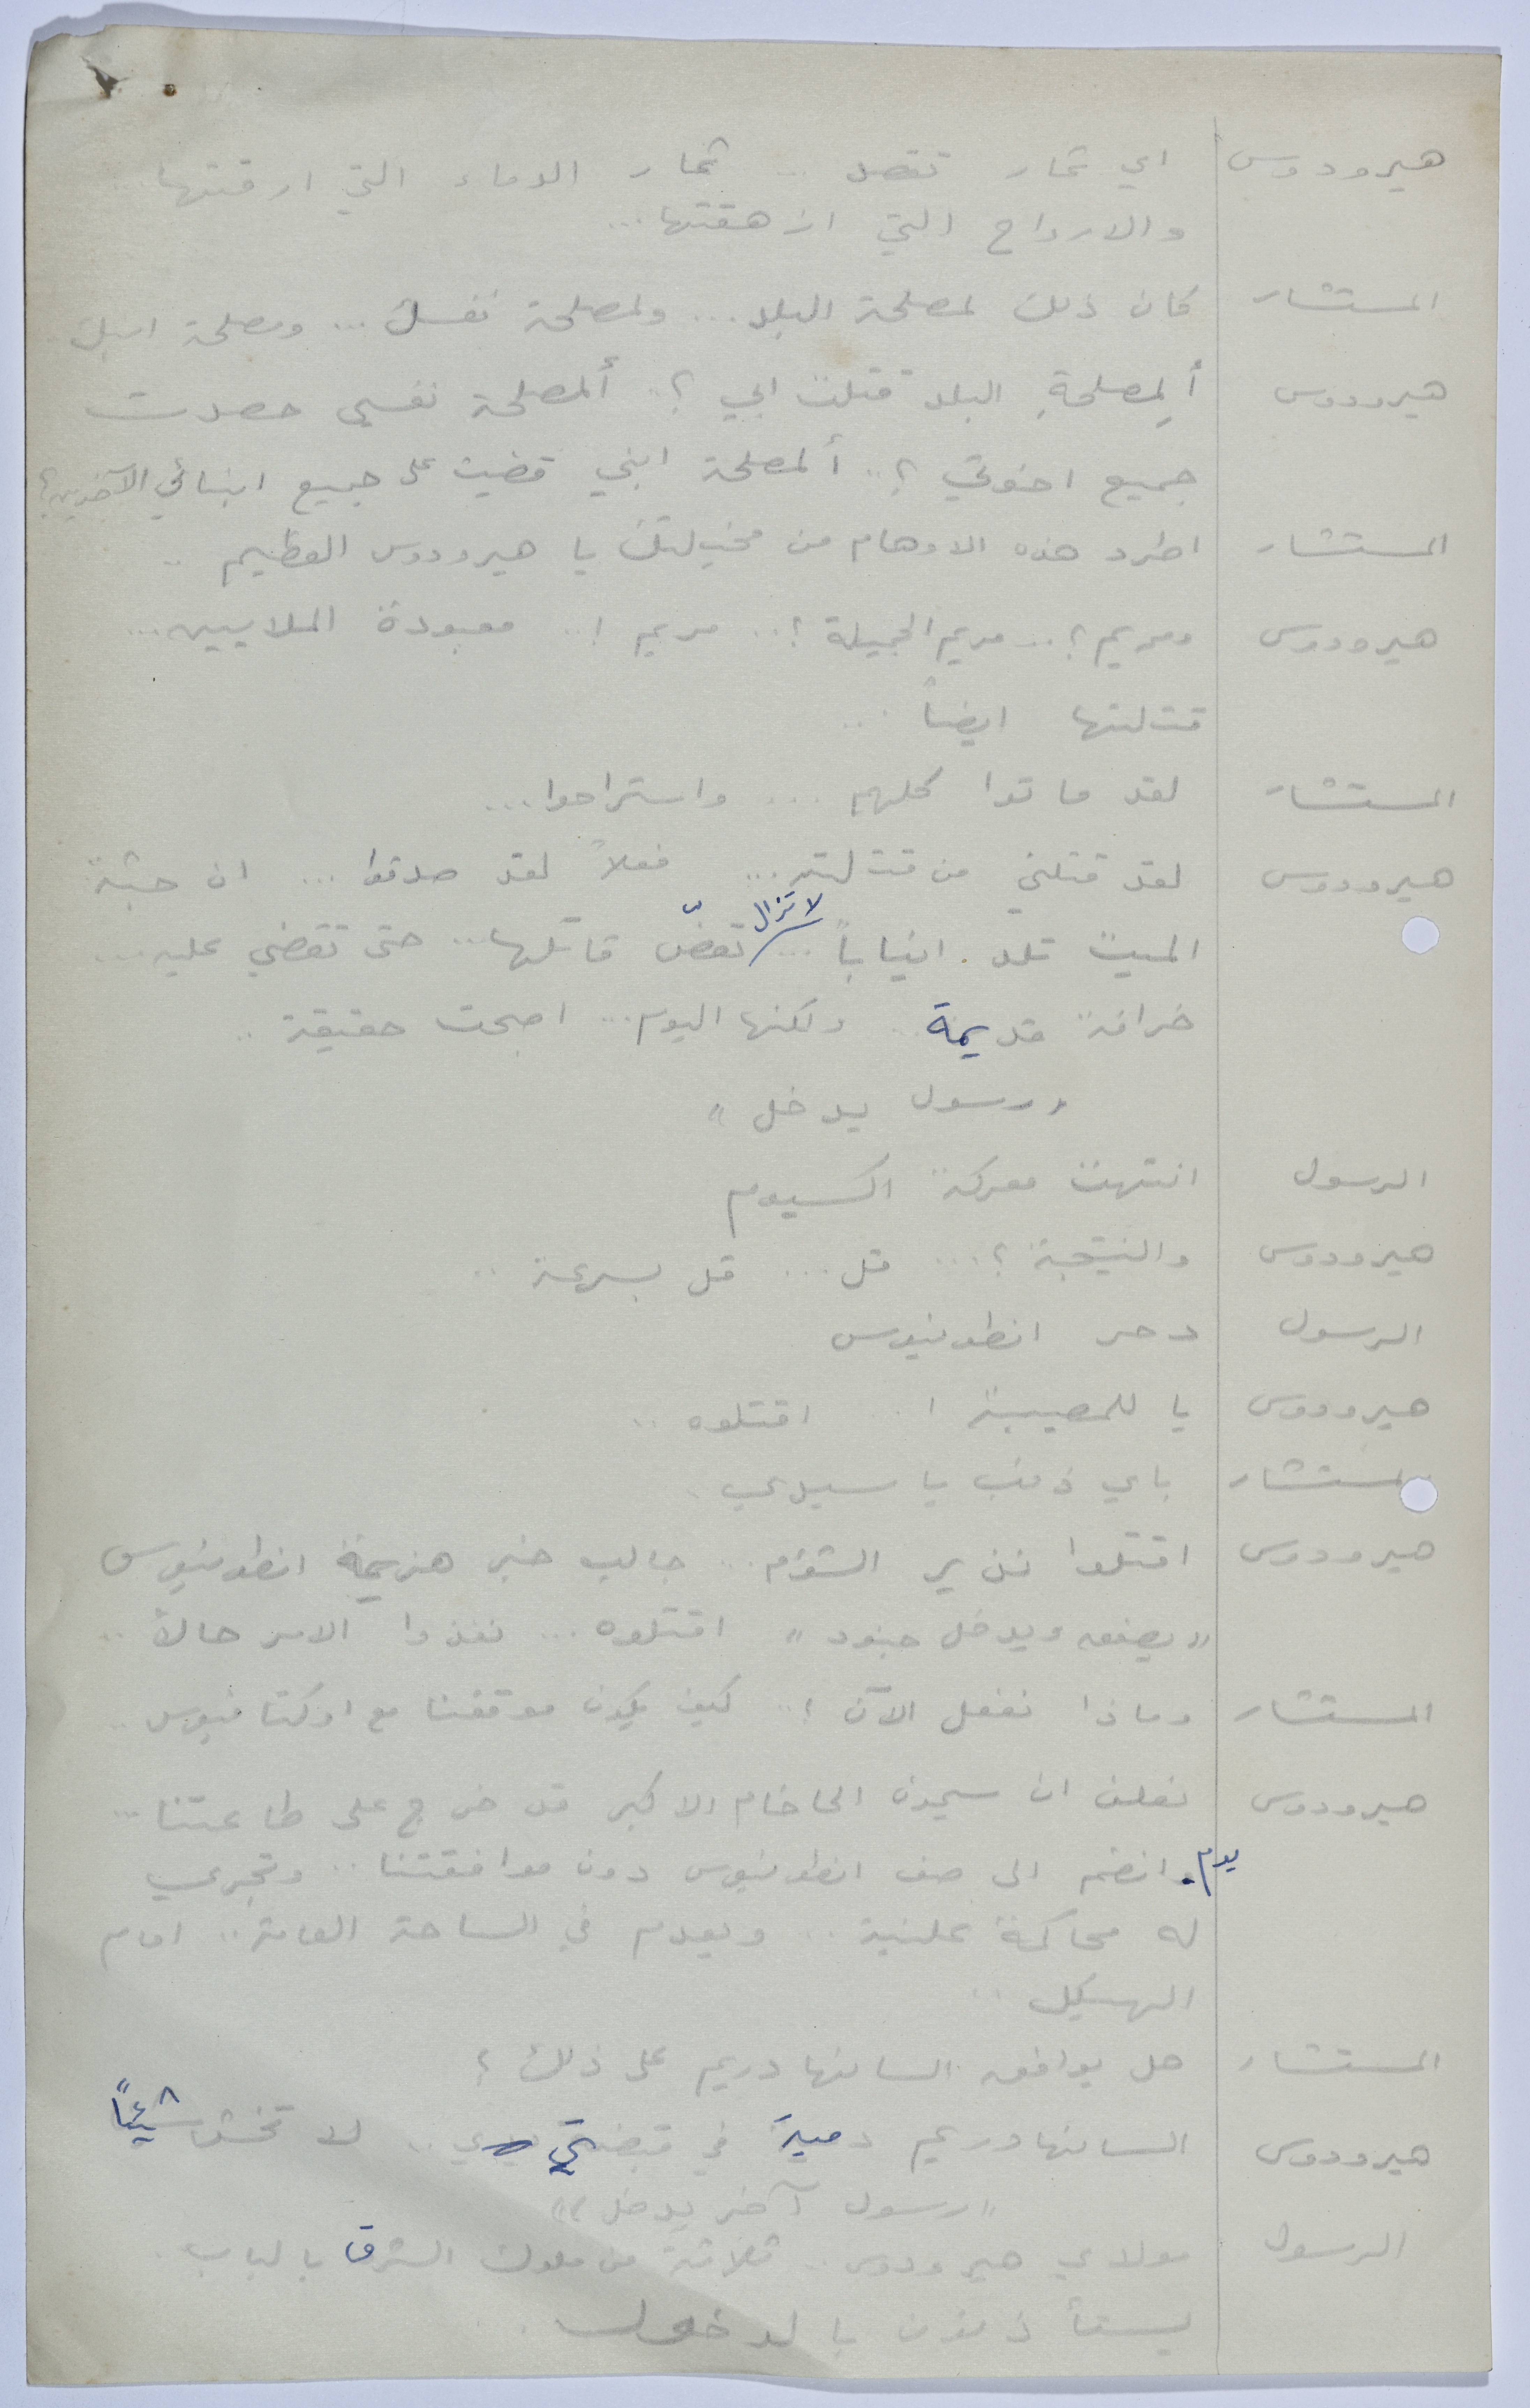 هيرودوس اي ثمار تقصد .. ثمار الدماء التي ارقتها ..
والارواح التي ازهقتها ...
المستشار كان ذلك لمصلحة البلد ... ولمصلحة نفسك ... ومصلحة ابنك ..
هيرودوس ألِمصلحةِ البلد قتلت ابي ؟ .. ألمصلحة نفسي حصدت
جميع اخوتي ؟ .. ألمصلحة ابني قضيت على جميع ابنائي الآخرين ؟
المستشار اطرد هذه الاوهام من مخيلتك يا هيرودوس العظيم ..
هيرودوس ومريم ؟ .. مريم الجميلة ؟ .. مريم ! .. معبودة الملايين ...
قتلتها ايضاً ...
المستشار لقد ماتوا كلهم ... واستراحوا ...
هيرودوس لقد قتلني من قتلته ... فعلاً لقد صدقوا ... ان جثة
الميت تلد انياباً ... لا تزال تعضّ قاتلها .. حتى تقضي عليه ...
خرافة قديمة .. ولكنها اليوم ... اصبحت حقيقة ..
« رسول يدخل »
الرسول انتهت معركة اكسيوم
هيرودوس والنتيجة ؟ ... قل ... قل بسرعة ..
الرسول دحر انطونيوس
هيرودوس يا للمصيبة ! .. اقتلوه ..
المستشار باي ذنب يا سيدي .
هيرودوس اقتلوا نذير الشؤم .. جالب خبر هزيمة انطونيوس
« يصفق ويدخل جنود » اقتلوه ... نفذوا الامر حالاً ..
المستشار وماذا نفعل الآن ؟ .. كيف يكون موقفنا مع اوكتافيوس ..
هيرودوس نعلن ان سيمون الحاخام الاكبر قد خرج على طاعتنا ...
يوم انضم الى صف انطونيوس دون موافقتنا .. وتجري
له محاكمة علنية .. ويعدم في الساحة العامة .. امام
الهيكل ..
المستشار هل يوافق السانهادريم على ذلك ؟
هيرودوس السانهادريم دمية في قبضتي .. لا تخش شيئاً
« رسول آخر يدخل »
الرسول مولاي هيرودوس .. ثلاثة من ملوك الشرق بالباب .
يستأذنون بالدخول ..